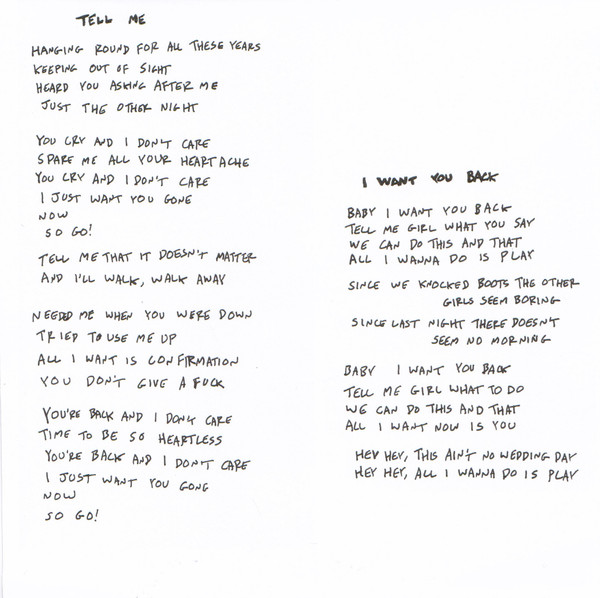 TELL ME
HANGING ROUND FOR ALL THESE YEARS
KEEPING OUT OF SIGHT
HEARD YOU ASKING AFTER ME
JUST THE OTHER NIGHT
YOU CRY AND I DON'T CARE
SPARE ME ALL YOUR HEARTACHE
YOU CRY AND I DON'T CARE
I JUST WANT YOU GONE
NOW
SO GO!
TELL ME THAT IT DOESN'T MATTER
AND I'LL WALK, WALK AWAY
NEEDED ME WHEN YOU WERE DOWN
TRIED TO USE ME UP
ALL I WANT IS CONFIRMATION
YOU DON'T GIVE A FUCK
YOU'RE BACK AND I DON'T CARE
TIME TO BE SO HEARTLESS
YOU'RE BACK AND I DON'T CARE
I JUST WANT YOU GONE
NOW
SO GO!
I WANT YOU BACK
BABY I WANT YOU BACK
TELL ME GIRL WHAT YOU SAY
WE CAN DO THIS AND THAT
ALL I WANNA DO IS PLAY
SINCE WE KNOCKED BOOTS THE OTHER
GIRLS SEEM BORING
SINCE LAST NIGHT THERE DOESN'T
SEEM NO MORNING
BABY I WANT YOU BACK
TELL ME GIRL WHAT TO DO
WE CAN DO THIS AND THAT
ALL I WANT NOW IS YOU
HEY HEY, THIS AIN'T NO WEDDING DAY
HEY HEY, ALL I WANNA DO IS PLAY